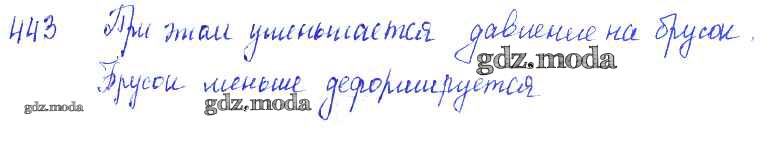 443 При этом уменьшается давление на брусок.
gdz.moda
Брусок меньше деформируется
gdz.moda gdz.moda